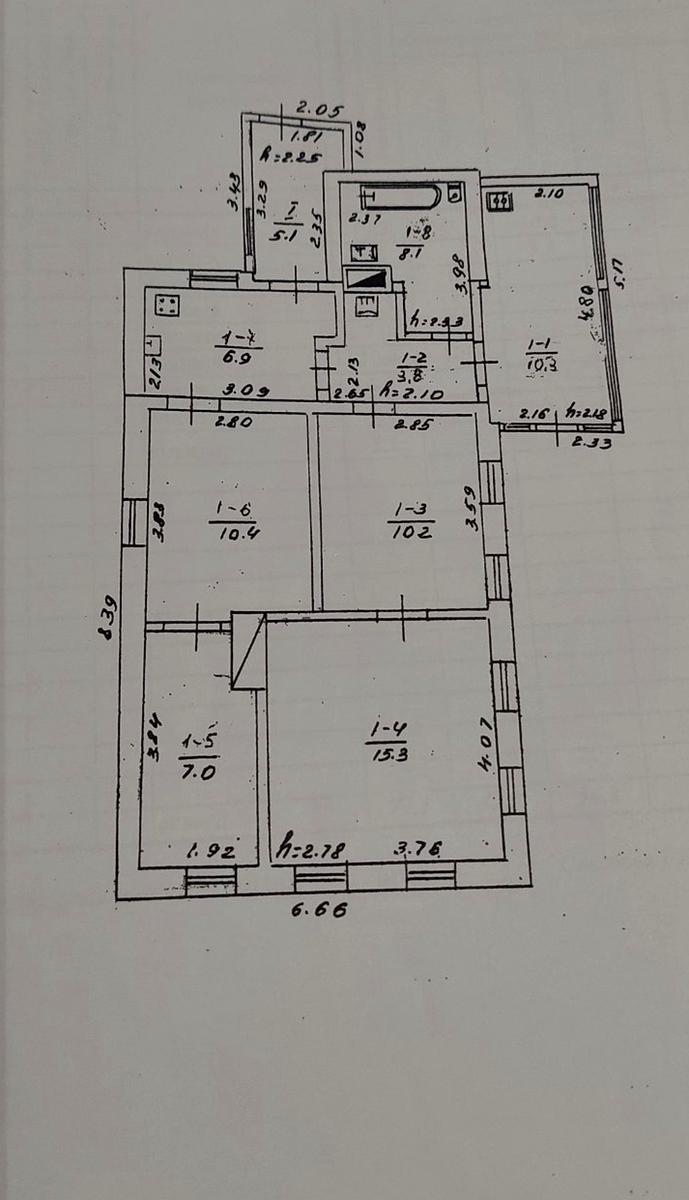 2.05
1.81
1.08
h=2.25
3.43
3.29
I
5.1
2.35
2.37
1-8
8.1
3.98
h=2.33
2.10
4.80
5.17
1-1
10.3
2.16
h=2.18
2.33
1-7
6.9
2.13
3.09
1-2
3.8
2.13
2.65
h=2.10
2.80
2.85
3.83
1-6
10.4
1-3
10.2
3.59
8.39
3.84
1-5
7.0
1-4
15.3
4.07
1.92
h=2.78
3.76
6.66